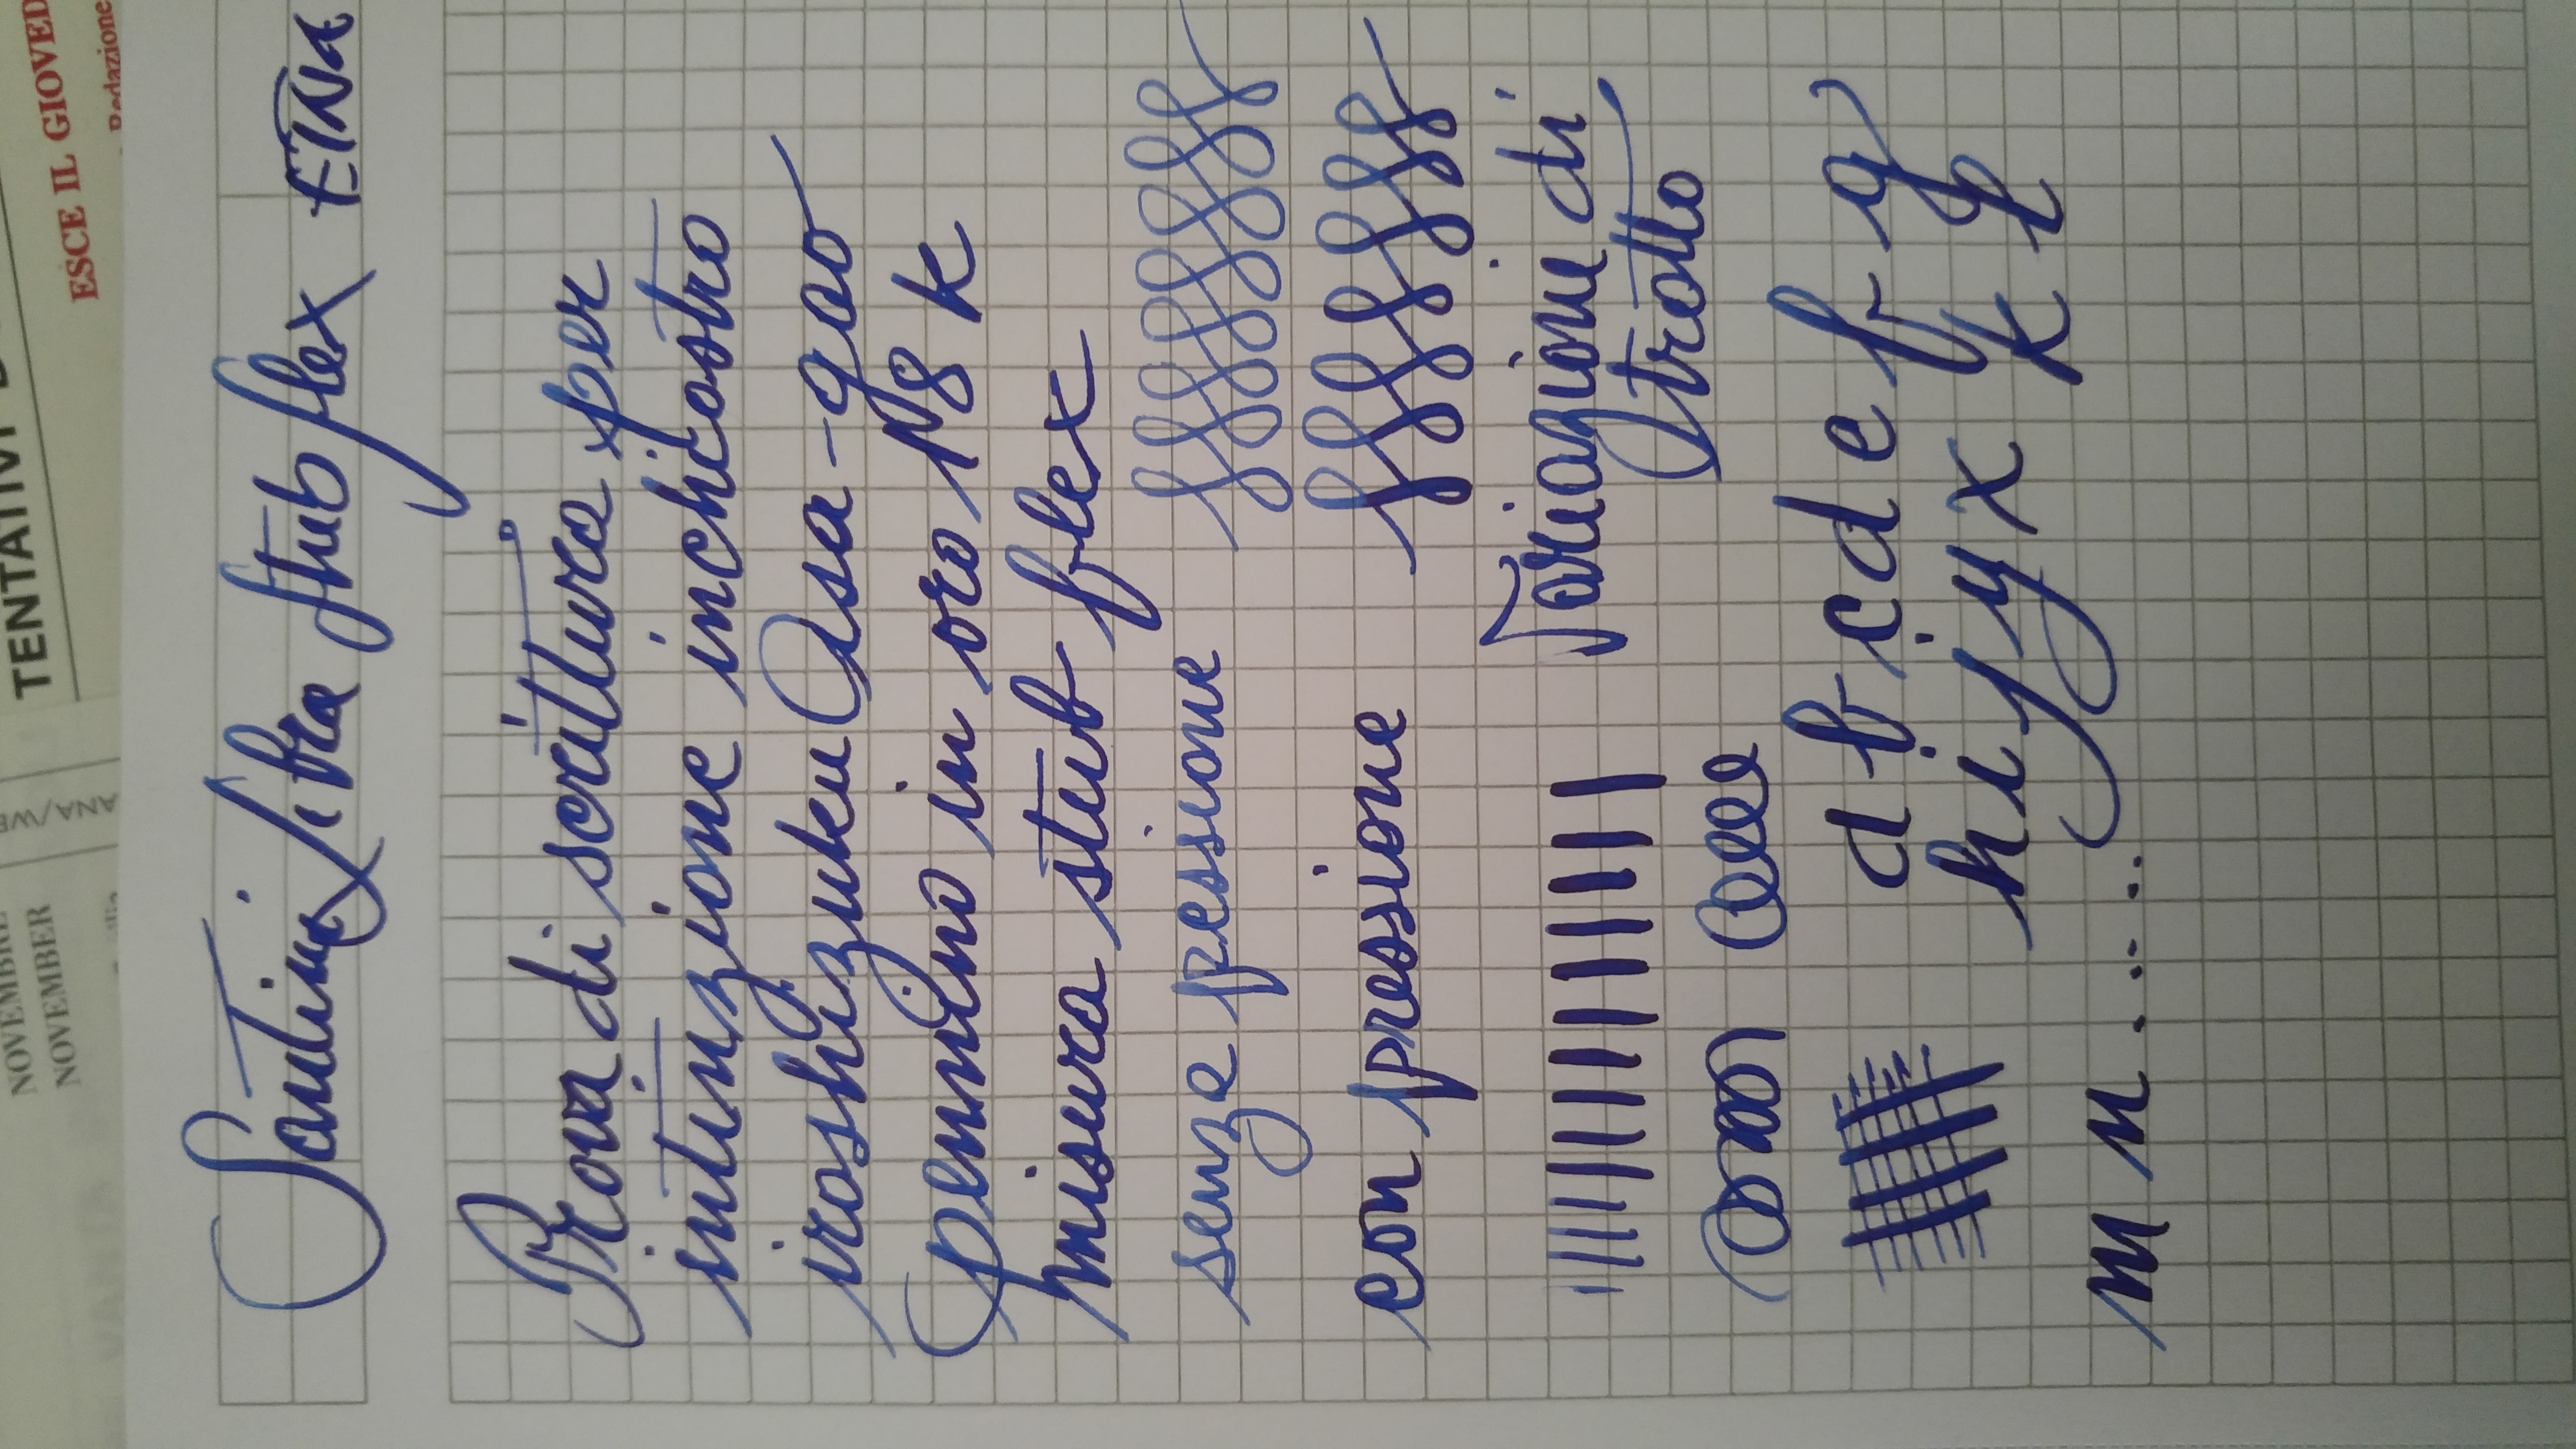 Santini Libra stub flex ETNA
Prova di scrittura per
intinzione inchiostro
iroshizuku Asa-gao
pennino in oro 18 k
misura stub flex
senza pessione
con pressione
Variazione di
tratto
a b c d e f g
h i j y x k k
m n
TENTATIVI
ESCE IL GIOVED
Redazione
NOVEMBRE
NOVEMBER